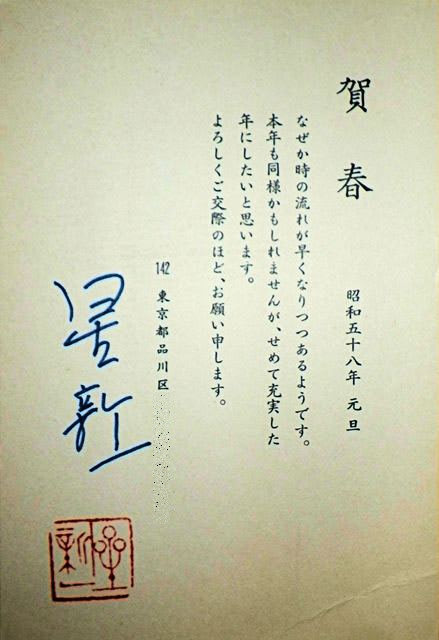 賀春
昭和五十八年 元旦
なぜか時の流れが早くなりつつあるようです。
本年も同様かもしれませんが、せめて充実した
年にしたいと思います。
よろしくご交際のほど、お願い申します。
142 東京都品川区
星新一
星新一